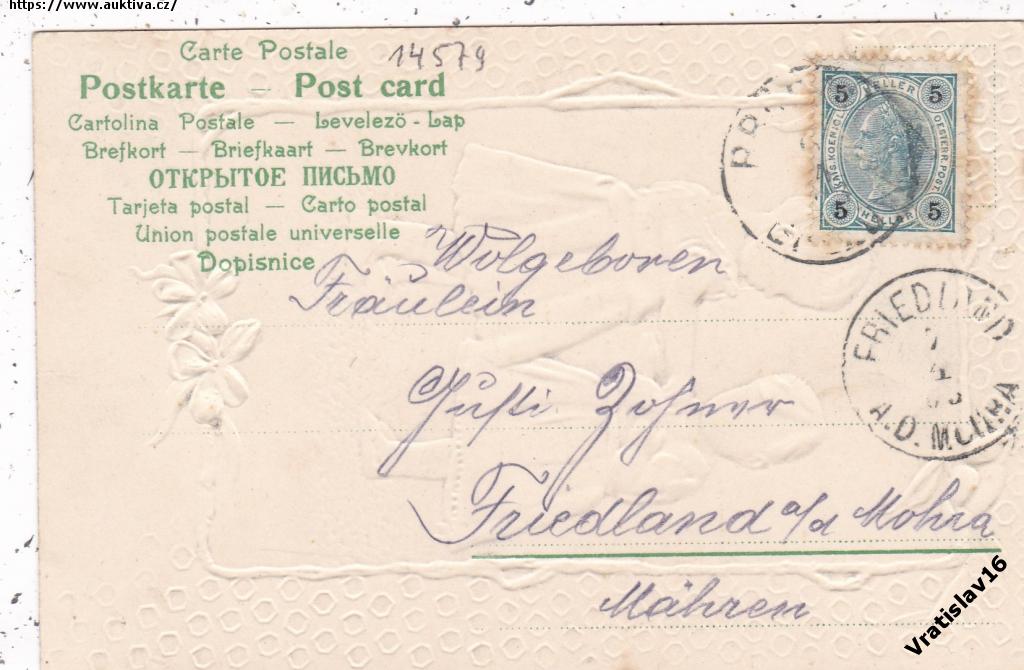 https://www.auktiva.cz/
Carte Postale
14579
Postkarte – Post card
Cartolina Postale — Levelező-Lap
Brefkort — Briefkaart — Brevkort
ОТКРЫТОЕ ПИСЬМО
Tarjeta postal — Carto postal
Union postale universelle
Dopisnice
5 HELLER 5
KAIS. KOENIGL. OESTERR. POST.
5 HELLER 5
Wolgeboren
Fräulein
FRIEDLAND
A.D. MOHRA
Gusti Zohner
Friedland a/d Mohra
Mähren
Vratislav16